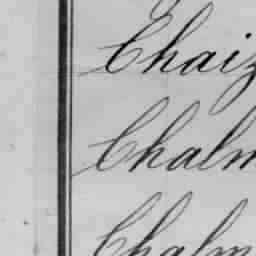 Chaiz
Chalm
Chalm